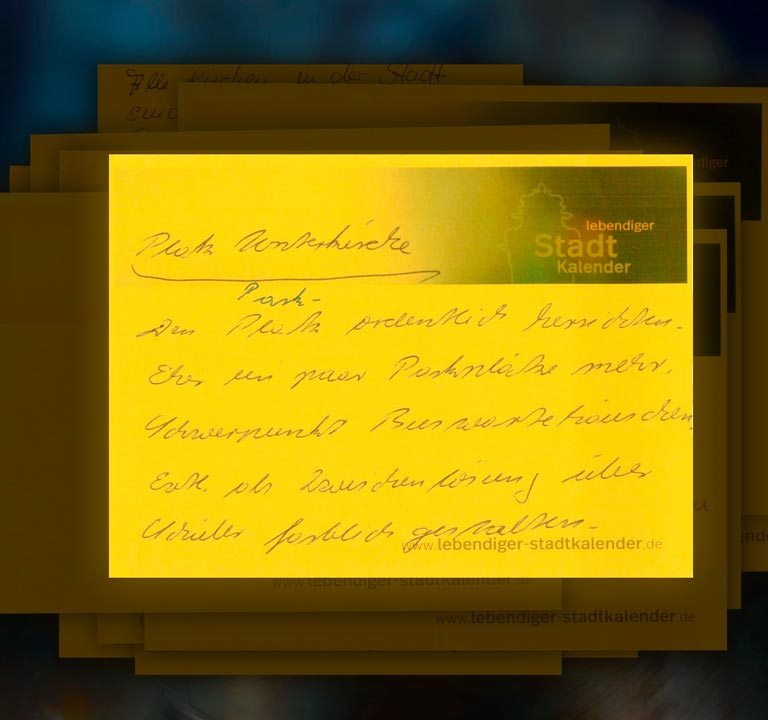 Alle Kirchen in der Stadt
sind
lebendiger
Stadt
Kalender
Platz Unterkirche
Park-
Den Platz ordentlich herrichten.
Eher ein paar Parkplätze mehr.
Schwerpunkt Buswartehäuschen.
Evtl. als Zwischenlösung über
Schüler farblich gestalten.
www.lebendiger-stadtkalender.de
www.lebendiger-stadtkalender.de
www.lebendiger-stadtkalender.de